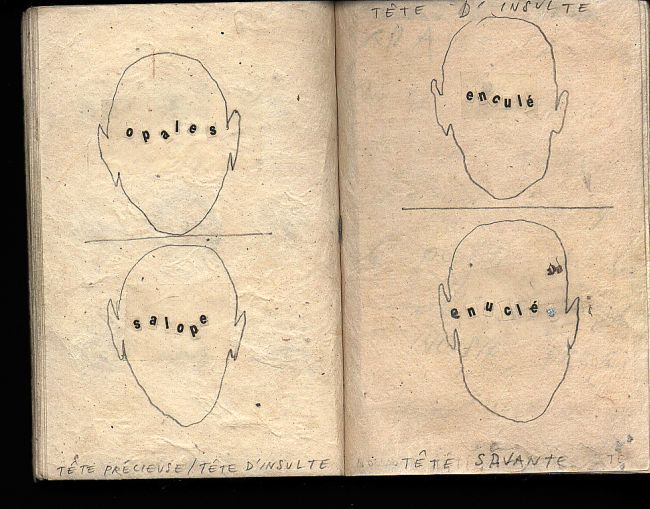 opales
salope
TÊTE PRÉCIEUSE/TÊTE D'INSULTE
TÊTE D'INSULTE
enculé
enuclé
TÊTE SAVANTE